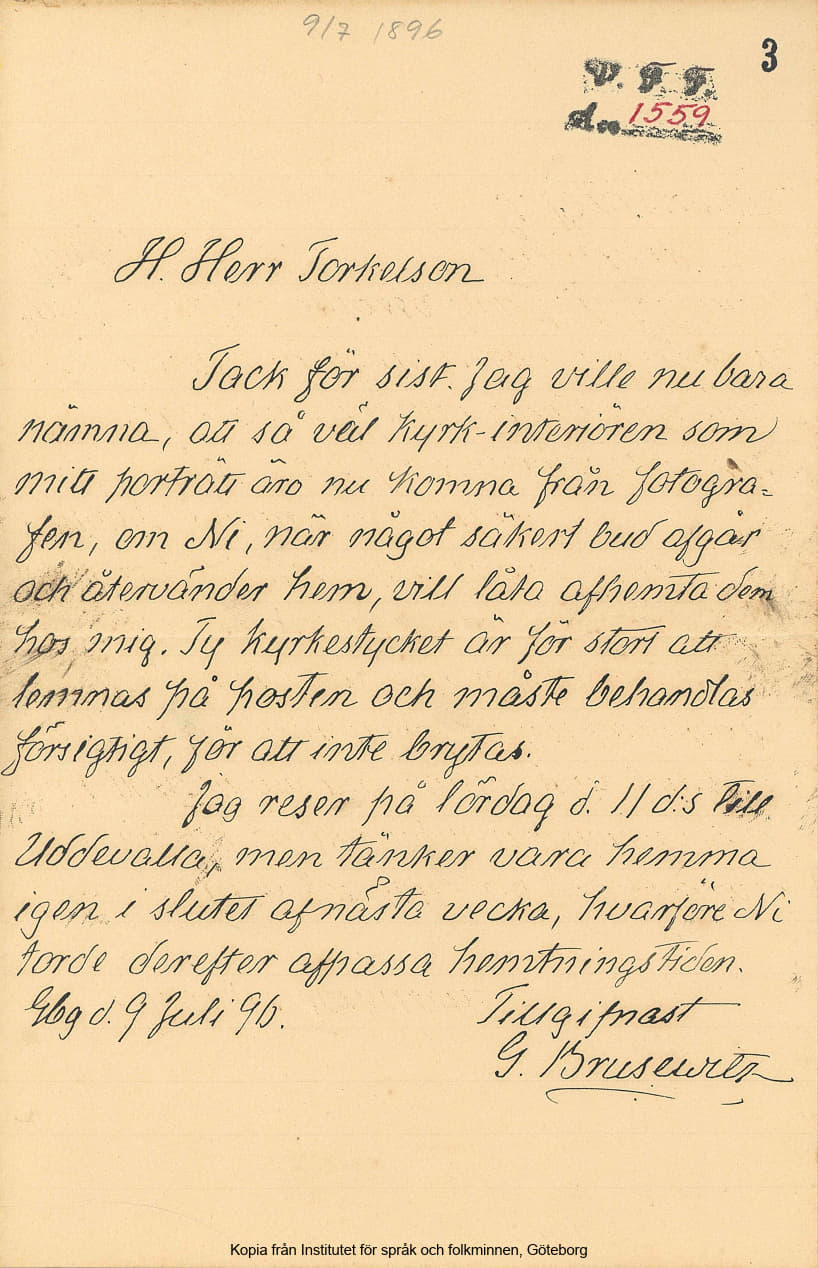 9/7 1896
3
V. F. F.
No 1559
H. Herr Torkelson
Tack för sist. Jag ville nu bara
nämna, att så väl kyrk-interiören som
mitt porträtt äro nu komna från fotogra=
fen, om Ni, när något säkert bud afgår
och återvänder hem, vill låta afhemta dem
hos mig. Ty kyrkestycket är för stort att
lemnas på posten och måste behandlas
försigtigt, för att inte brytas.
Jag reser på lördag d. 11 d:s till
Uddevalla, men tänker vara hemma
igen i slutet af nästa vecka, hvarföre Ni
torde derefter afpassa hemtningstiden.
Gbg d. 9 Juli 96.
Tillgifnast
G. Brusewitz
Kopia från Institutet för språk och folkminnen, Göteborg